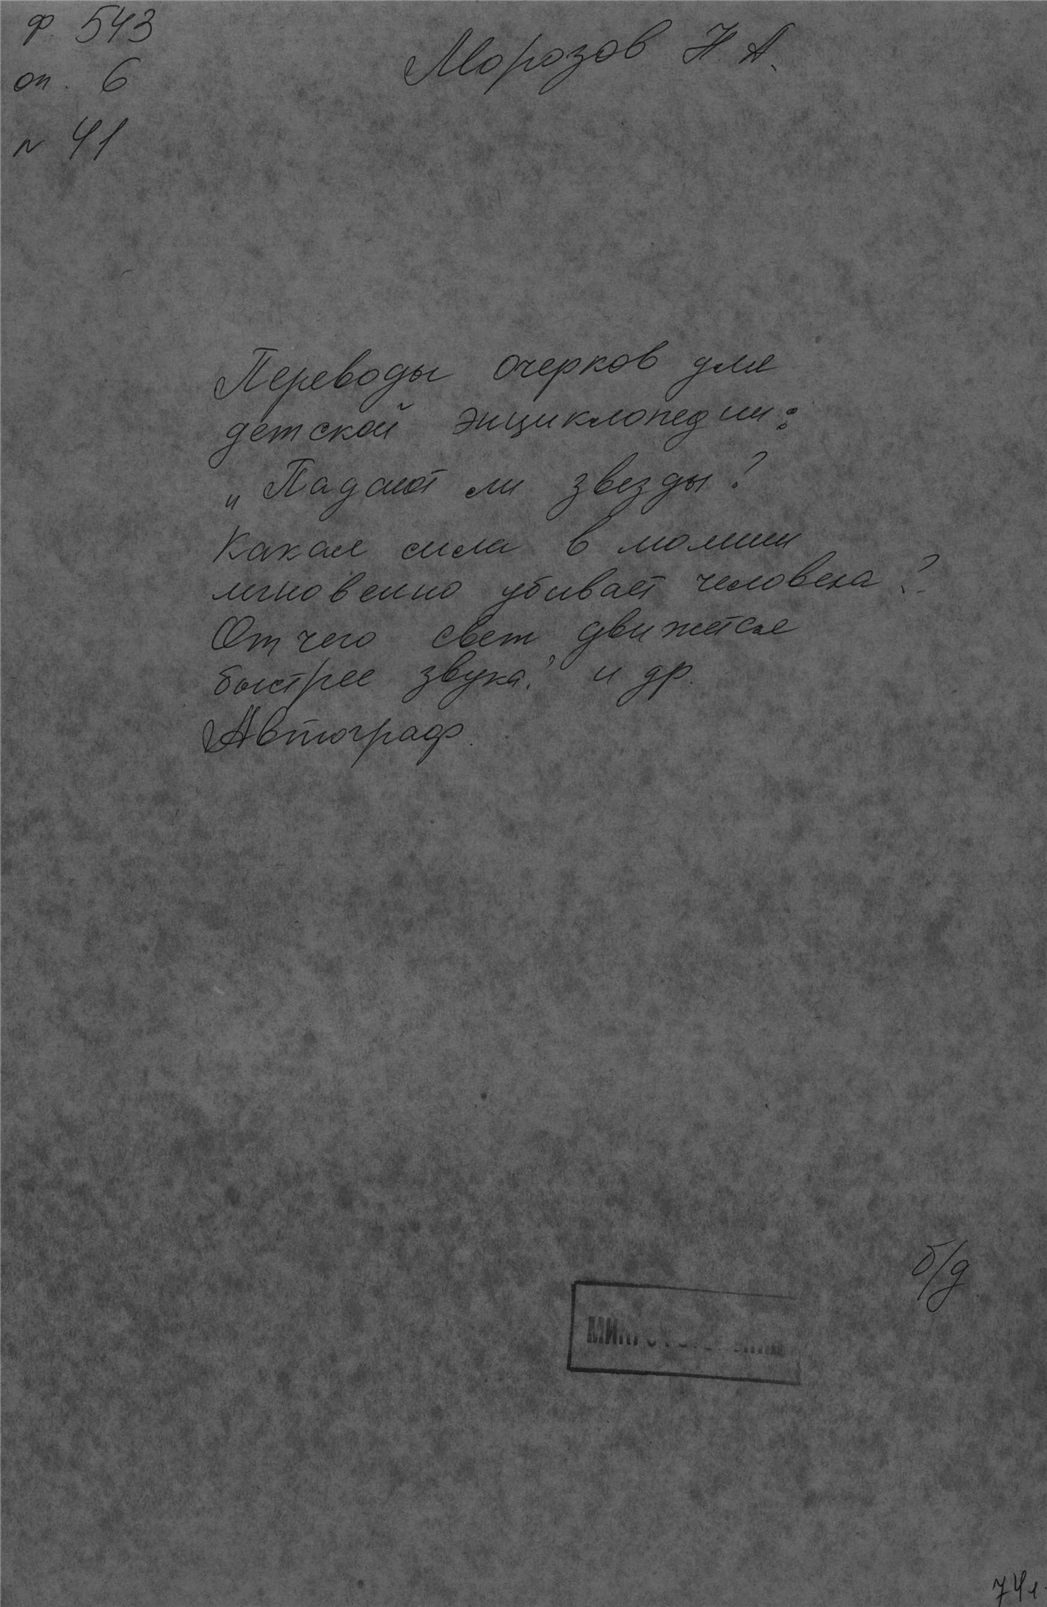 ф. 543
оп. 6
№ 41
Морозов Н. А.
Переводы очерков для
детской энциклопедии:
„Падают ли звезды?
Какая сила в молнии
мгновенно убивает человека?
Отчего свет движется
быстрее звука?" и др.
Автограф.
б/д
74 л.